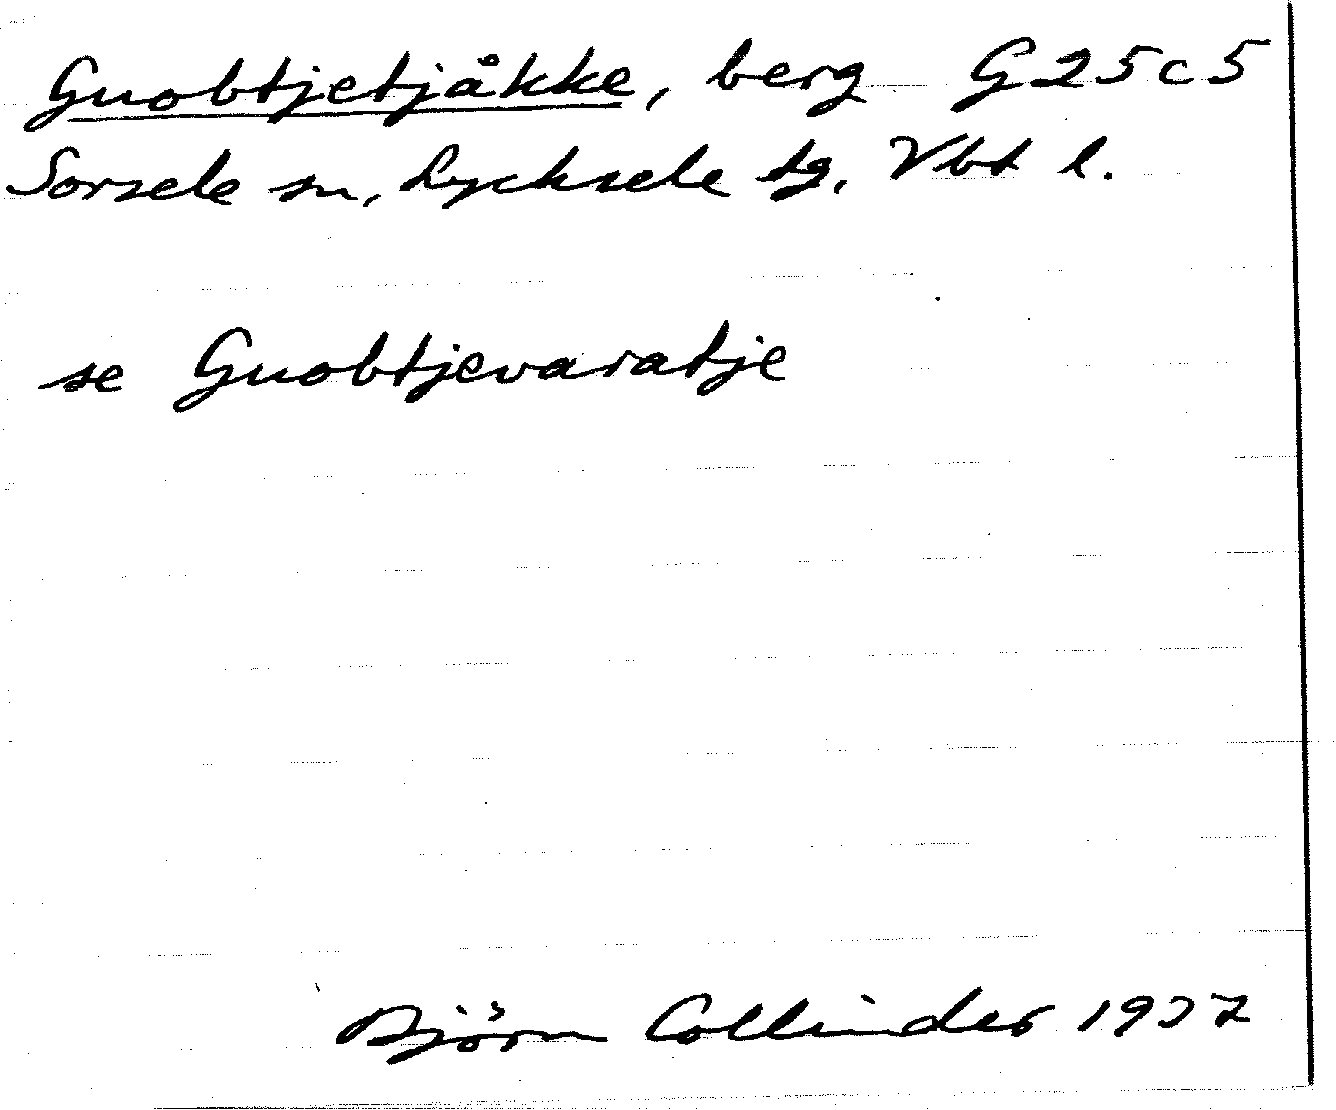 Guobtjetjåkke, berg G25c5
Sorsele sn, Lycksele tg, Vbt l.
se Guobtjevaratje
Björn Collinder